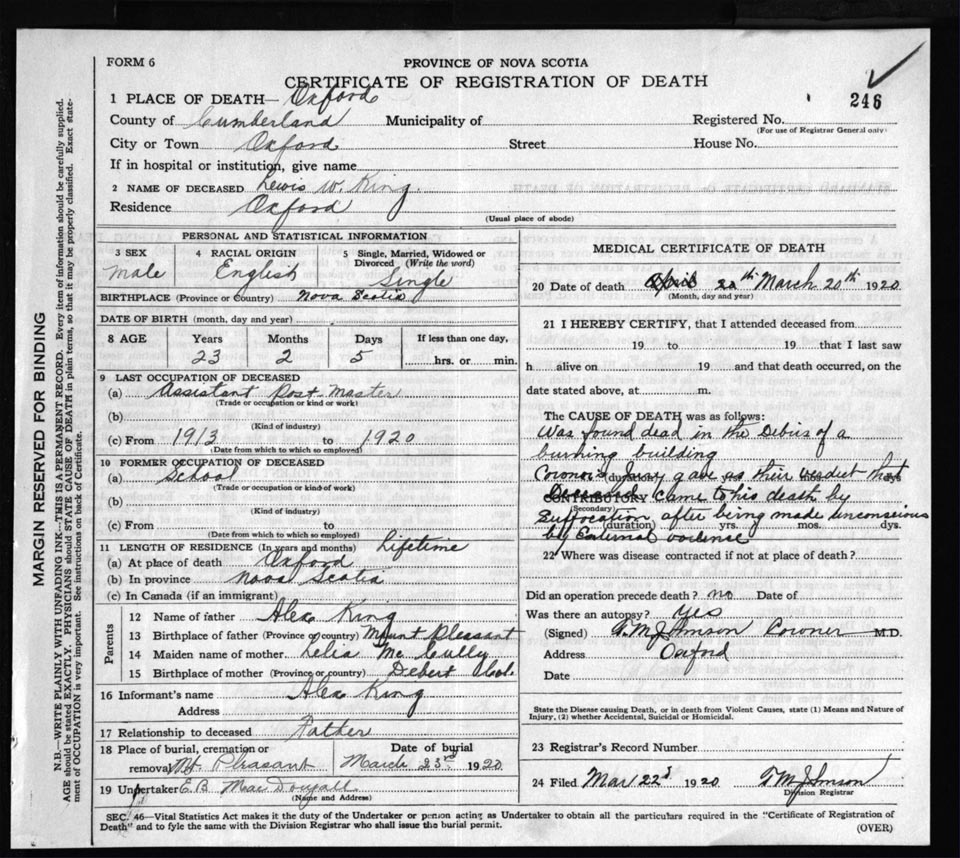 FORM 6
PROVINCE OF NOVA SCOTIA
CERTIFICATE OF REGISTRATION OF DEATH
246
1 PLACE OF DEATH— Oxford
County of Cumberland Municipality of Registered No.
(For use of Registrar General only)
City or Town Oxford Street House No.
If in hospital or institution, give name
2 NAME OF DECEASED Lewis W. King.
Residence Oxford
(Usual place of abode)
PERSONAL AND STATISTICAL INFORMATION
3 SEX 4 RACIAL ORIGIN 5 Single, Married, Widowed or
Divorced (Write the word)
Male English Single
BIRTHPLACE (Province or Country) Nova Scotia
DATE OF BIRTH (month, day and year)
8 AGE Years Months Days If less than one day,
23 2 5 hrs. or min.
9 LAST OCCUPATION OF DECEASED
(a) Assistant Post-Master
(Trade or occupation or kind of work)
(b)
(Kind of industry)
(c) From 1913 to 1920
(Date from which to which so employed)
10 FORMER OCCUPATION OF DECEASED
(a) School
(Trade or occupation or kind of work)
(b)
(Kind of industry)
(c) From to
(Date from which to which so employed)
11 LENGTH OF RESIDENCE (In years and months) Lifetime
(a) At place of death Oxford
(b) In province Nova Scotia
(c) In Canada (if an immigrant)
Parents
12 Name of father Alex King
13 Birthplace of father (Province or country) Mount Pleasant
14 Maiden name of mother Lelia McCully
15 Birthplace of mother (Province or country) Debert
16 Informant's name Alex King
Address
17 Relationship to deceased Father
18 Place of burial, cremation or Date of burial
removal Mt. Pleasant March 23rd 1920
19 Undertaker C.B. MacDougall
(Name and Address)
MEDICAL CERTIFICATE OF DEATH
20 Date of death April 20th March 20th 1920
(Month, day and year)
21 I HEREBY CERTIFY, that I attended deceased from
19 to 19 that I last saw
h alive on 19 and that death occurred, on the
date stated above, at m.
The CAUSE OF DEATH was as follows:
Was found dead in the Debris of a
burning building
Coronor's Jury gave as their verdict that
(duration) yrs. mos. days
Deceased came to his death by
CONTRIBUTORY
(Secondary)
Suffocation after being made unconscious
(duration) yrs. mos. dys.
by External violence
22 Where was disease contracted if not at place of death?
Did an operation precede death? no Date of
Was there an autopsy? Yes
(Signed) Coroner M.D.
Address Oxford
Date
State the Disease causing Death, or in death from Violent Causes, state (1) Means and Nature of
Injury, (2) whether Accidental, Suicidal or Homicidal.
23 Registrar's Record Number
24 Filed Mar 22d 1920
Division Registrar
SEC. 46—Vital Statistics Act makes it the duty of the Undertaker or person acting as Undertaker to obtain all the particulars required in the "Certificate of Registration of
Death" and to fyle the same with the Division Registrar who shall issue the burial permit.
(OVER)
MARGIN RESERVED FOR BINDING
N.B.—WRITE PLAINLY WITH UNFADING INK—THIS IS A PERMANENT RECORD. Every item of information should be carefully supplied.
AGE should be stated EXACTLY. PHYSICIANS should STATE CAUSE OF DEATH in plain terms, so that it may be properly classified. Exact state-
ment of OCCUPATION is very important. See instructions on back of Certificate.